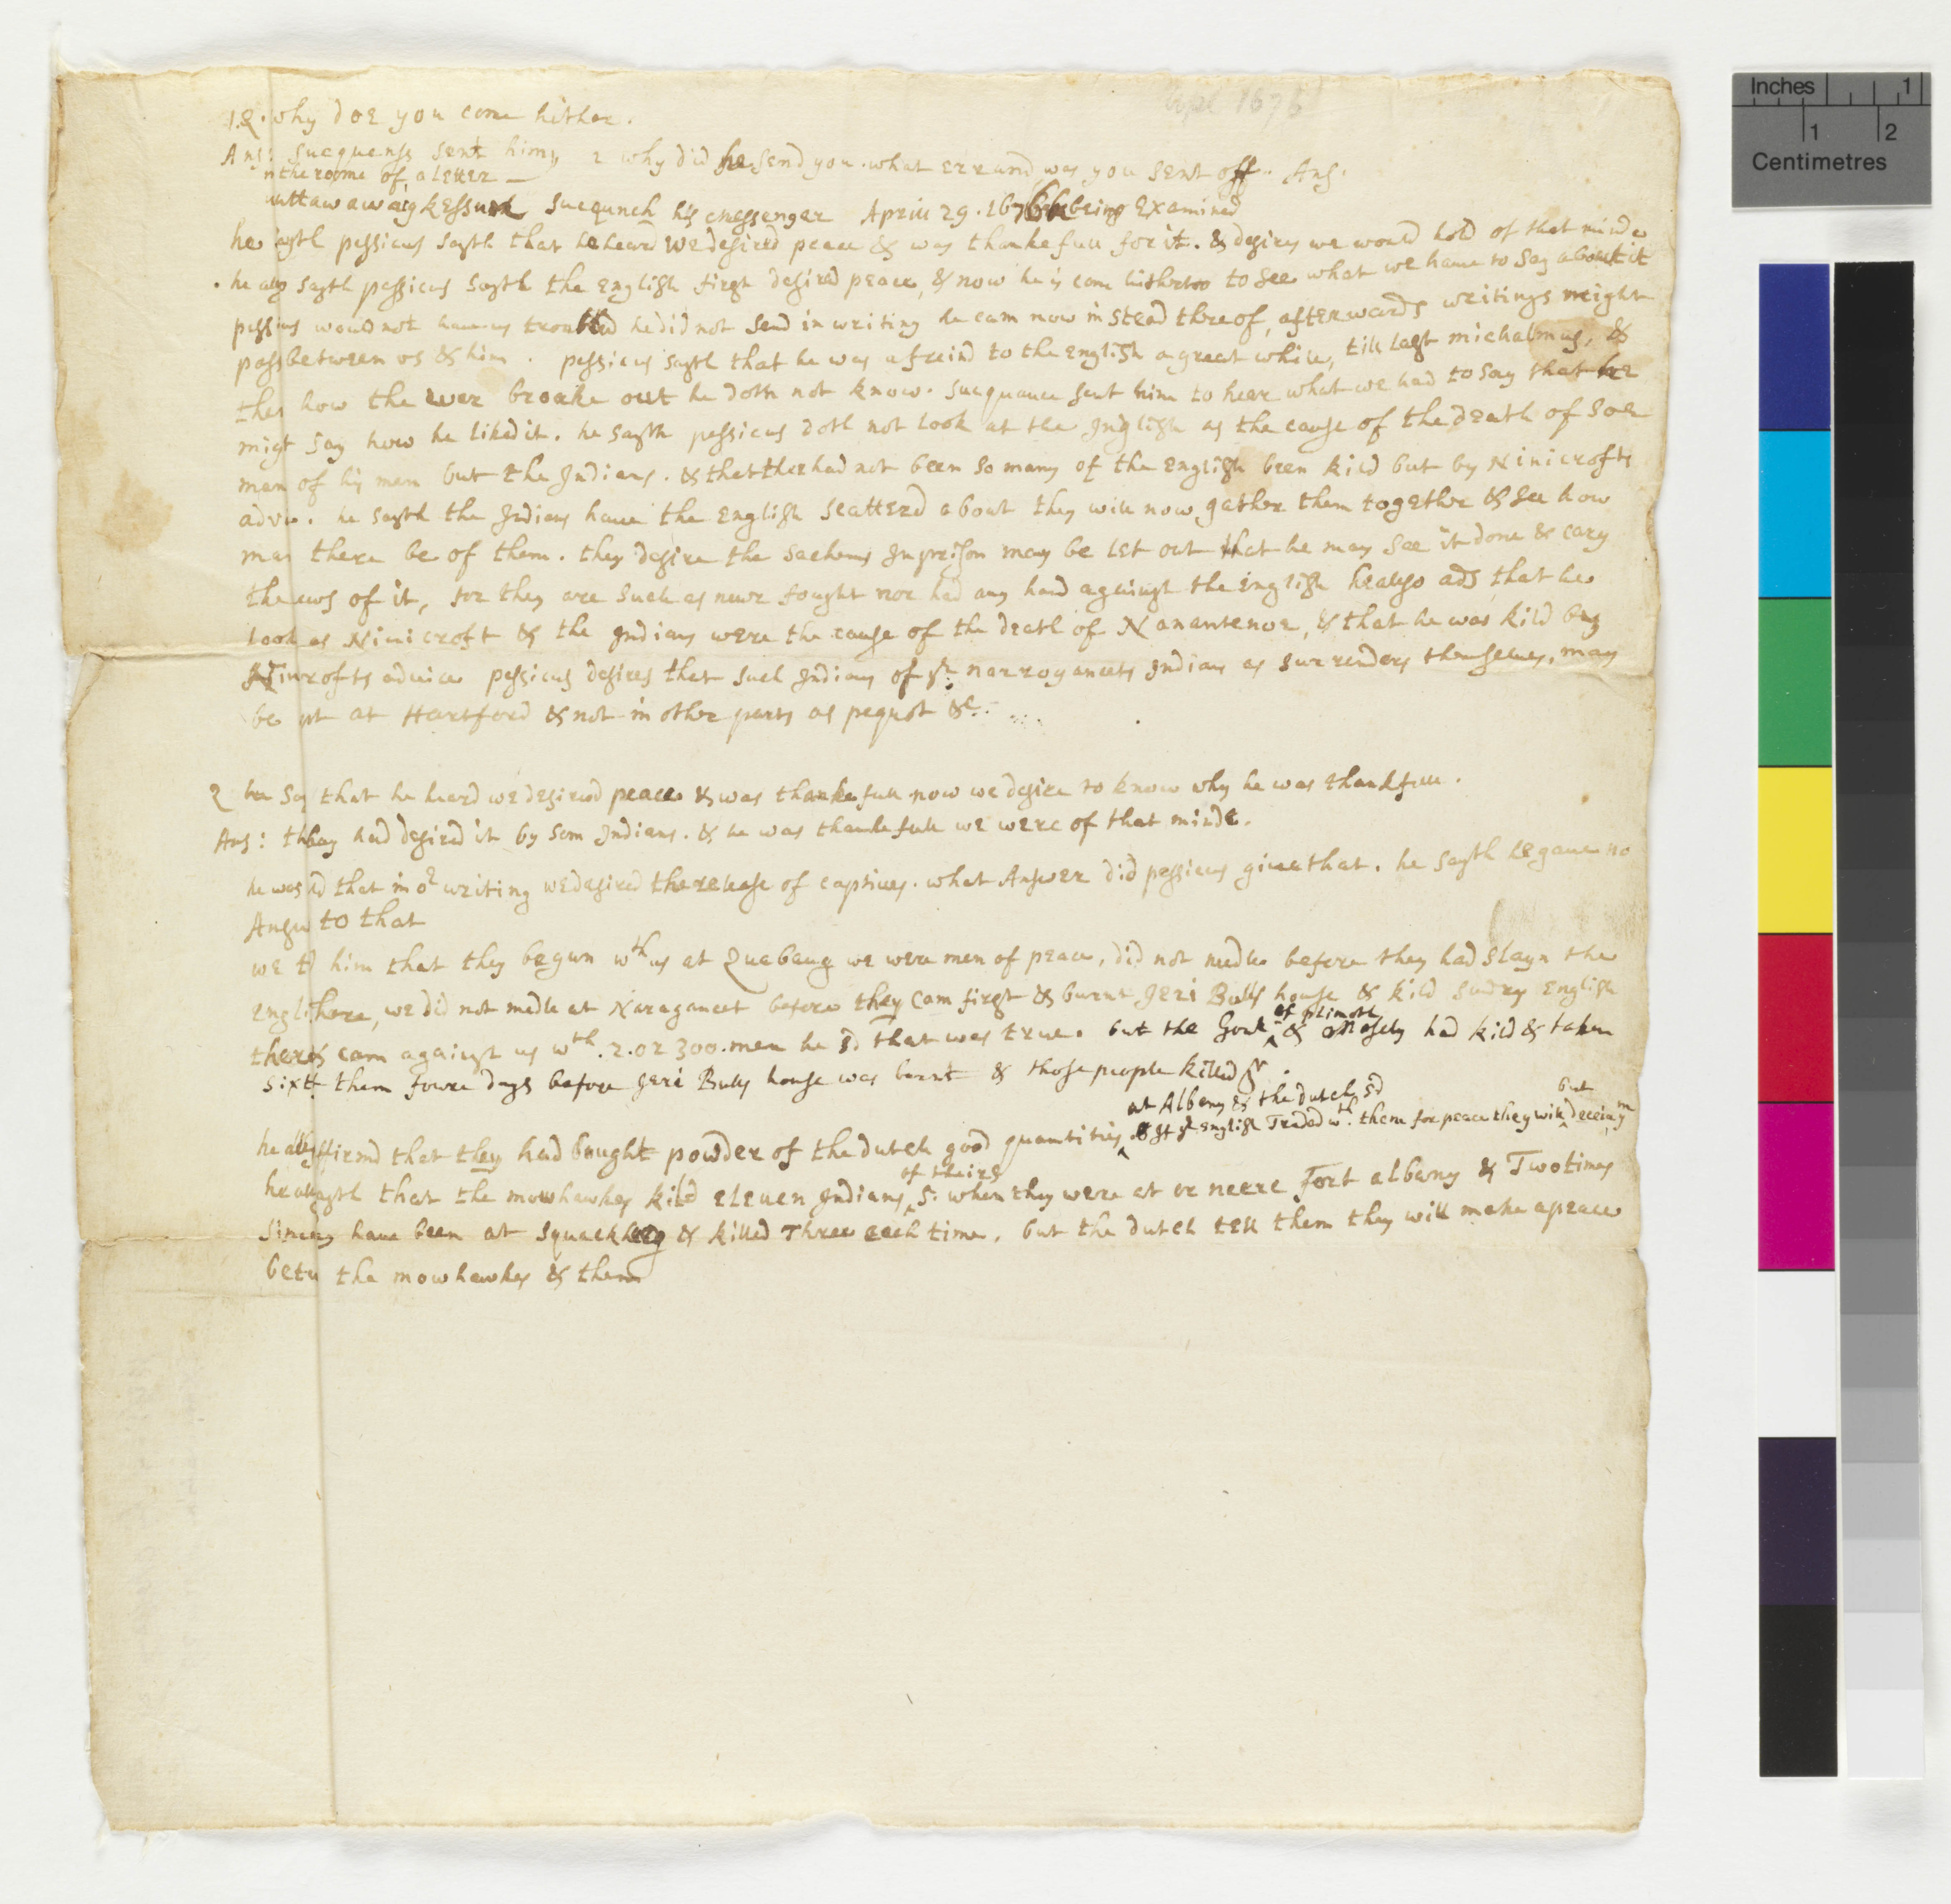 Apl 1676
1.Q. why doe you come hither.
Ans: sucquenss sent him, 2 why did he send you. what errand was you sent off. Ans.
in the roome of a letter —
uttawawaigkessuk sucqunch his messenger Aprill 29. 1676 being Examined
he sayth pessicus sayth that he heard we desired peace & was thankefull for it. & desires we would hold of that minde
. he also sayth pessicus sayth the english first desired peace, & now he is come hitherto to see what we have to say about it
pessicus would not have us troubled he did not send in writing he cam now in stead threof, afterwards writings might
pass between us & him. pessicus sayth that he was a freind to the English a great while, till last michalmus, &
then how the war broake out he doth not know. sucquance sent him to heer what we had to say that he
migt say how he liked it. he sayth pessicus doth not look at the Inglish as the cause of the death of soe
man of his men but the Indians. & that ther had not been so many of the english been kild but by Ninicrofts
advic. he sayth the Indians have the english scatterd about they will now gather them together & see how
man there be of them. they desire the sachems In prison may be let out that he may see it done & cary
the ews of it, for they are such as never fought nor had any hand against the English he also ads that he
look as Ninicroft & the Indians were the cause of the death of Nanantenoe, & that he was kild by
Ninicrofts advice pessicus desires that such Indians of ye narrogancets Indians as surrenders themselves, may
be ut at Hartford & not in other parts as pequot &c.
Q he say that he heard we desired peace & was thankefull now we desire to know why he was thankfull.
Ans: they had desired it by som Indians. & he was thankefull we were of that minde.
he was d that in or writing we desired the release of captives. what Answer did pessicus give that. he sayth he gave no
Answ to that
we t d him that they begun wth us at Quabaug we were men of peace, did not medle before they had slayn the
Engli here, we did not medle at Naragancet before they cam first & burnt Jeri Bulls house & kild sudry English
there & cam against us wth. 2. or 300. men he sd that was true. but the Govr of plimoth & Mosely had kild & taken
sixt them fowre days before Jeri Bulls house was burnt & those people killed
at Albany & the dutch sd
but
he also ffirmd that they had bought powder of the dutch good quantities, If ye english Traded wth. them for peace they will deceiv ym
of theirs
he also sayth that the mowhawkes kild eleven Indians, s: when they were at or neere Fort albany & Two times
since y have been at squackheg & killed Three each time, but the dutch tell them they will make a peace
betw the mowhawkes & them
Inches 1
1 2
Centimetres